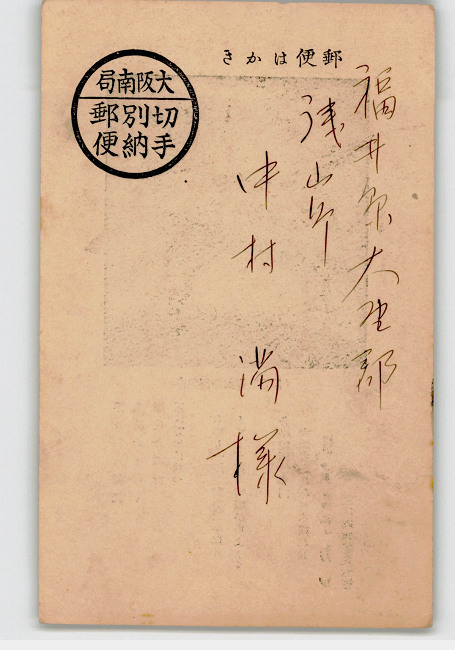 郵便はかき
大阪南局
切手
別納
郵便
福井県大野郡
中村 満 様